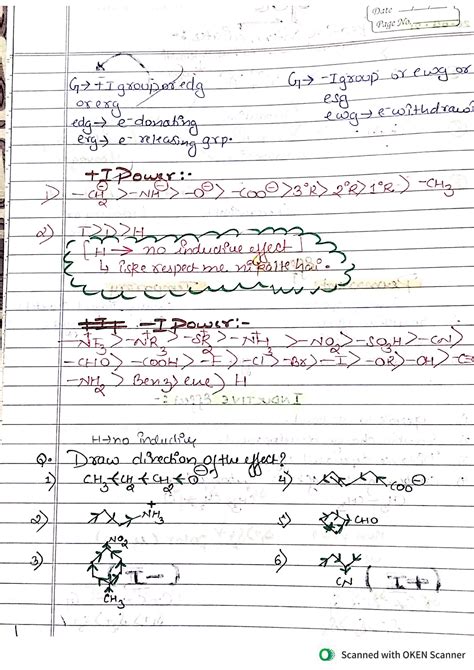 Date
Page No.
G→ +I group or edg
or erg
edg→ e- donating
erg→ e- releasing grp.
G→ -I group or ewg or
esg
ewg→ e- withdrawi
+I Power:-
1) -CH2⊖ > -NH⊖ > -O⊖ > -COO⊖ > 3°R > 2°R > 1°R > -CH3
2) T>D>H
[H → no inductive effect]
↳ iske respect me nikalte hai.
-I Power:-
-NF3+ > -NR3+ > -SR2+ > -NH3+ > -NO2 > -SO3H > -CN >
-CHO > -COOH > -F > -Cl > -Br > -I > -OR > -OH >
-NH2 > Benzene > H
H→no inductive
Q. Draw direction of the effect?
1) CH3 CH2 CH2 O⊖
4) COO⊖
2) NH3+
5) CHO
3) NO2
CH3
(I-)
6) CN
(I+)
Scanned with OKEN Scanner